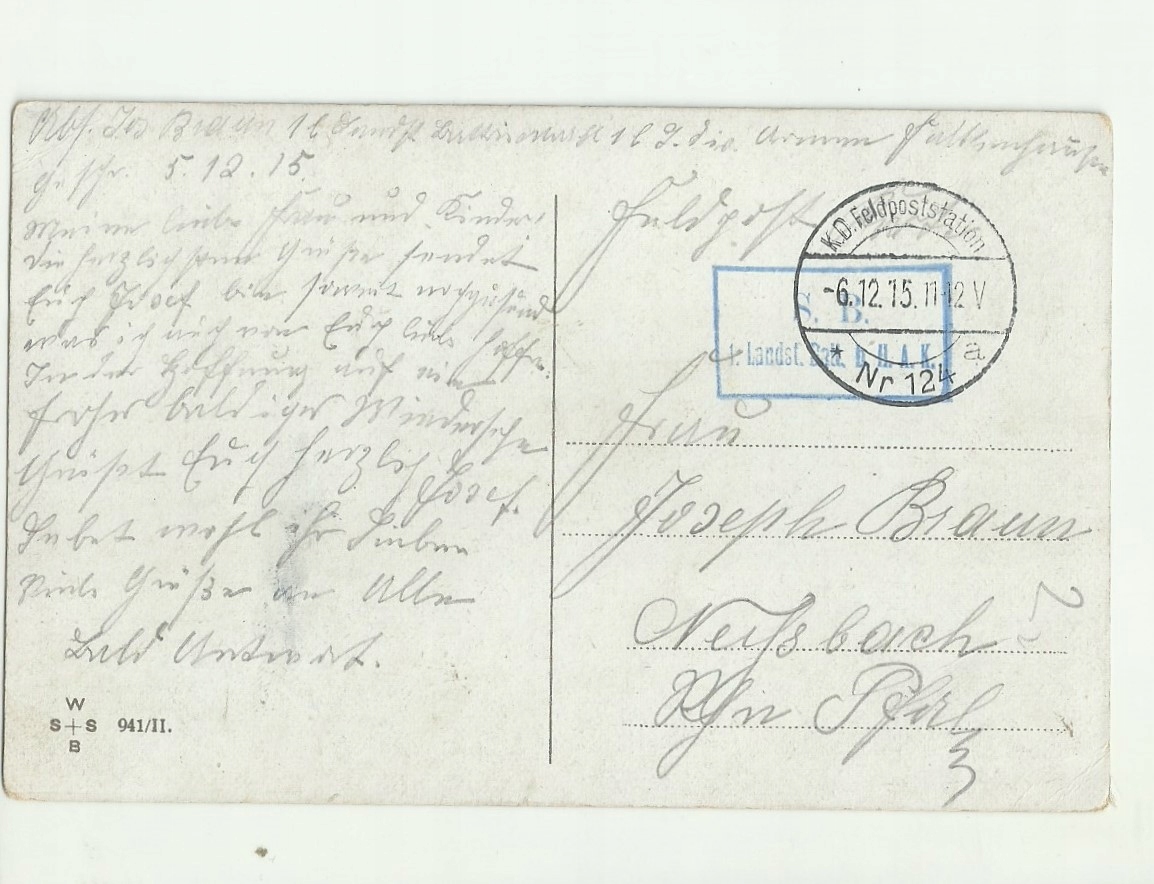 Abs. Jos Braun 1 b Landst 1 b 9. div. Armee Falkenhausen
geschr. 5.12.15.
Meine liebe Frau und Kinder,
die herzlichsten Grüße sendet
Euch Josef bin soweit noch gesund
was ich auch von Euch Liebe hoffe.
In der Hoffnung auf ein
frohes baldiges Wiedersehn
Grüßt Euch herzlich Josef.
Lebet wohl ihr Lieben
Viele Grüße an Alle
Bald Antwort.
W
S+S 941/II.
B
Feldpost
K.D.Feldpoststation
-6.12.15. 11-12 V
* a
Nr 124
S. B.
1. Landst. Batt. II. A. K.
Frau
Joseph Braun
Neußbach
Rhn Pfalz